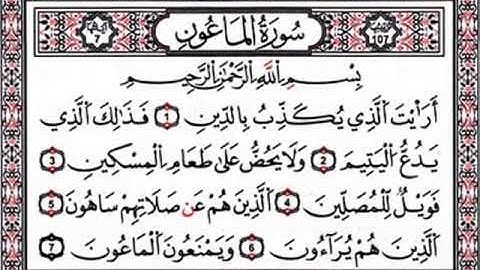 سُورَةُ الْمَاعُونِ
107
7
بِسْمِ اللَّهِ الرَّحْمَٰنِ الرَّحِيمِ
أَرَأَيْتَ الَّذِي يُكَذِّبُ بِالدِّينِ 1 فَذَٰلِكَ الَّذِي
يَدُعُّ الْيَتِيمَ 2 وَلَا يَحُضُّ عَلَىٰ طَعَامِ الْمِسْكِينِ 3
فَوَيْلٌ لِلْمُصَلِّينَ 4 الَّذِينَ هُمْ عَنْ صَلَاتِهِمْ سَاهُونَ 5
الَّذِينَ هُمْ يُرَاءُونَ 6 وَيَمْنَعُونَ الْمَاعُونَ 7